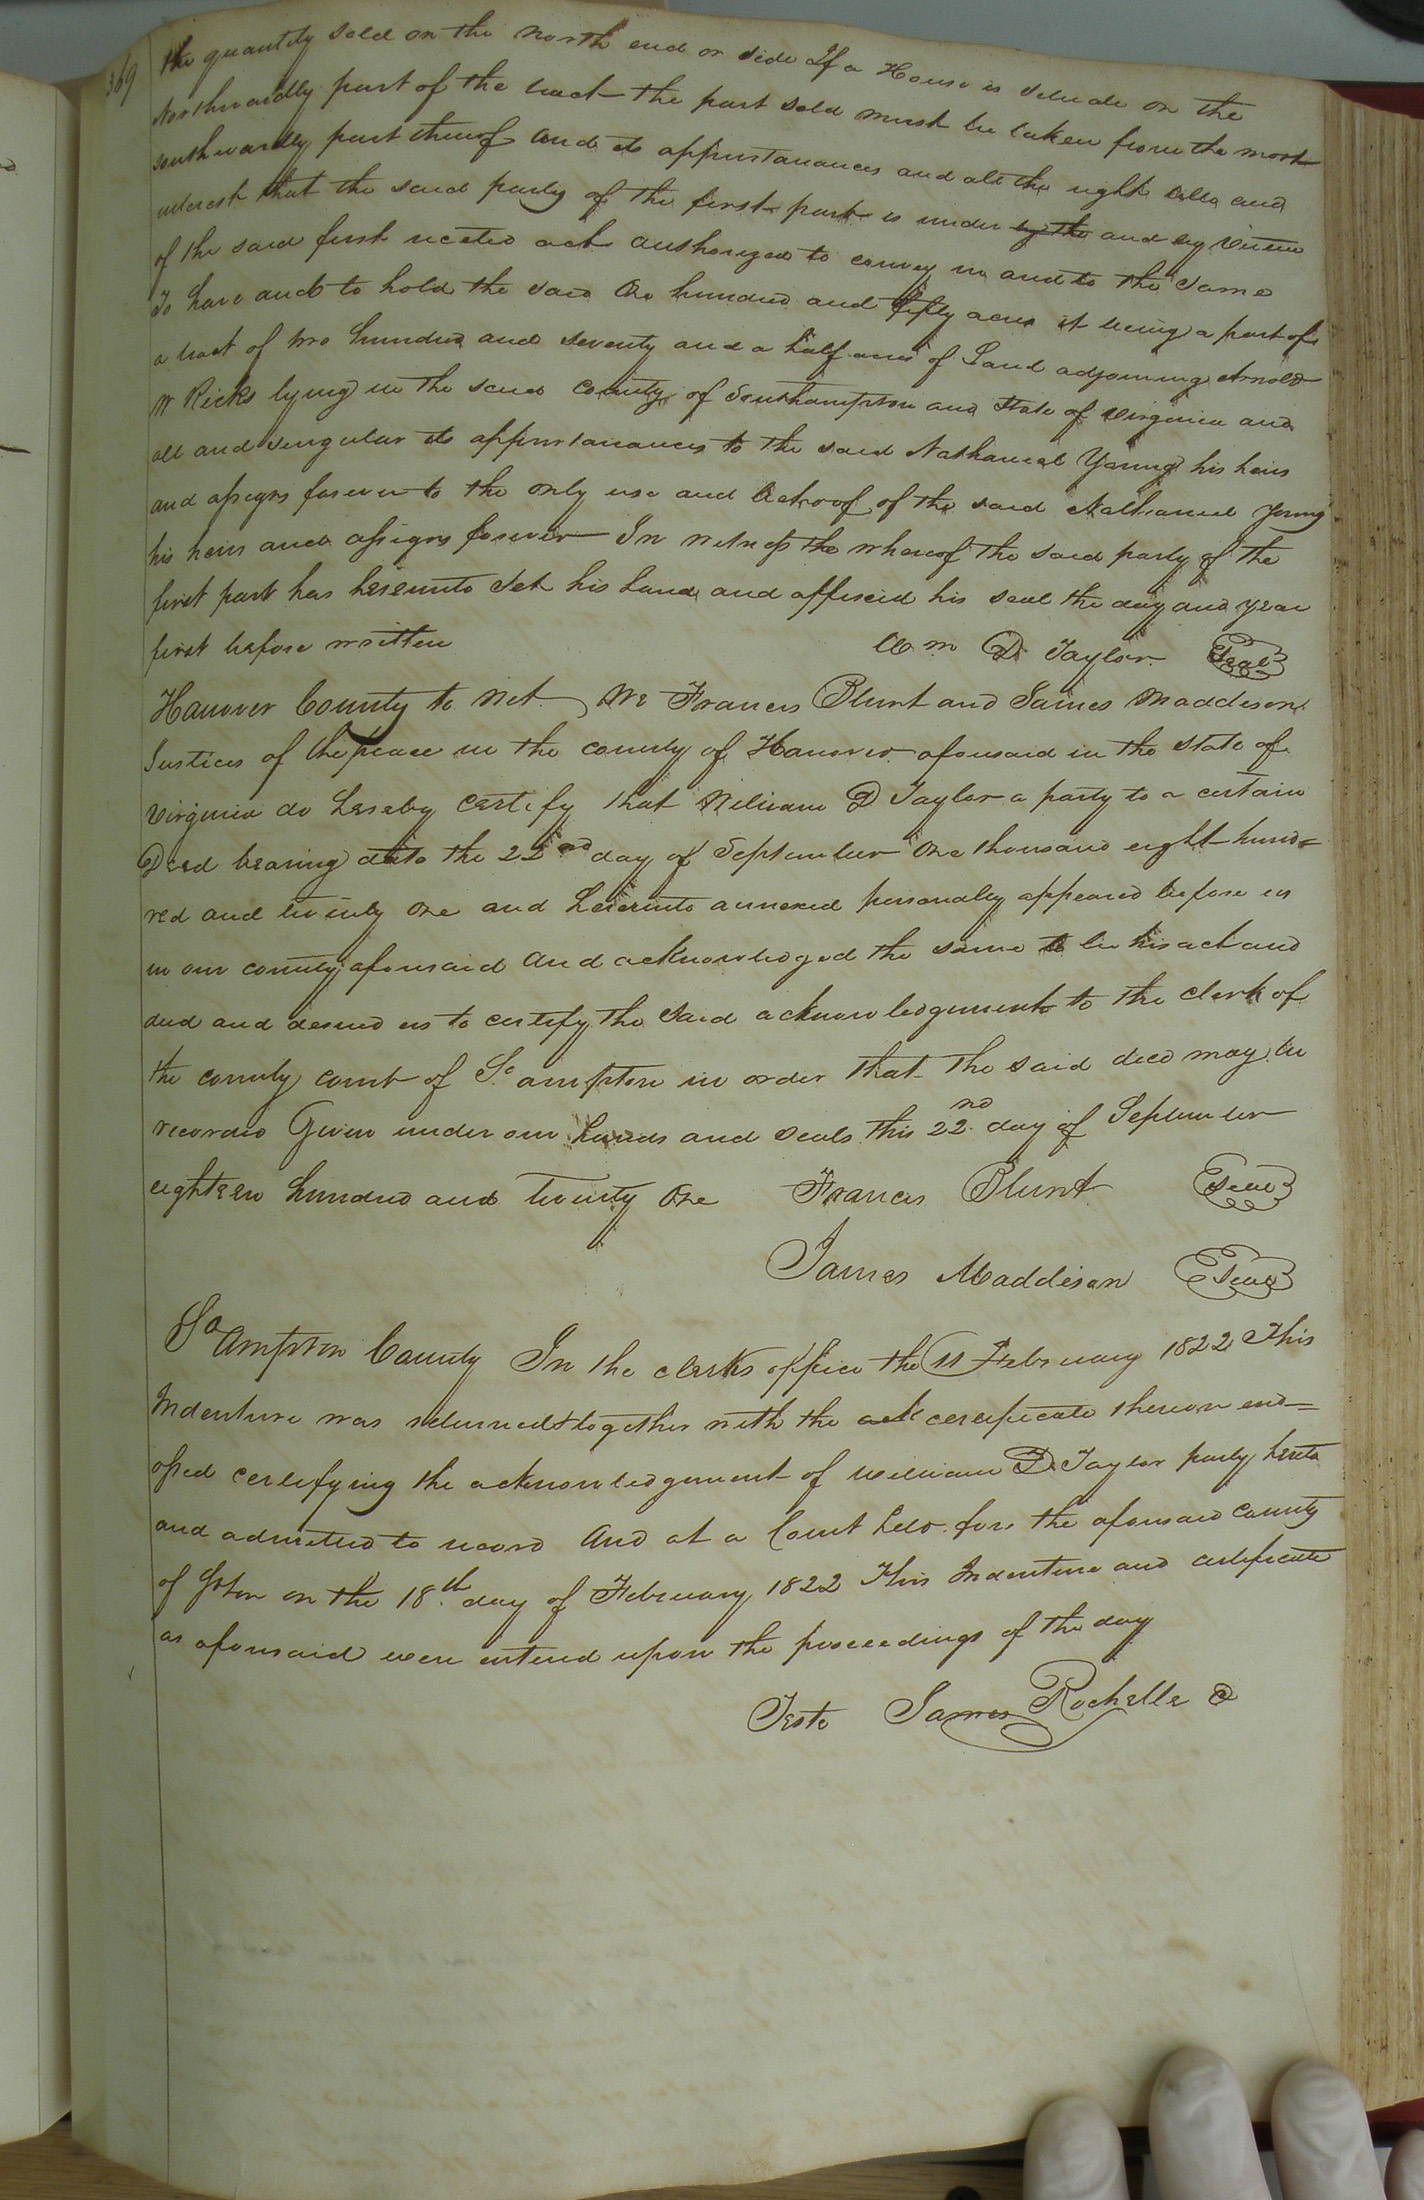 369
the quantity sold on the north end or side If a House is situate on the
Northwardly part of the tract the part sold must be taken from the most
southwardly part thereof and its appurtanances and all the right title and
interest that the said party of the first part is under by the and by virtue
of the said first recited act authorized to convey in and to the same
To have and to hold the said One hundred and fifty acres it being a part of
a tract of two hundred and seventy and a half acres of Land adjoining Arnold
W Ricks lying in the said County of Southampton and State of Virginia and
all and singular its appurtanances to the said Nathaniel Young his heirs
and assigns forever to the only use and behoof of the said Nathaniel Young
his heirs and assigns forever In witness the whereof the said party of the
first part has hereunto set his hand and affixed his seal the day and year
first before written Wm D. Taylor Seal
Hanover County to wit We Francis Blunt and James Maddison
Justices of the peace in the county of Hanover aforesaid in the State of
Virginia do hereby certify that William D Taylor a party to a certain
Deed bearing date the 22nd day of September One thousand eight hund=
red and twenty one and hereunto annexed personally appeared before us
in our county aforesaid and acknowledged the same to be his act and
deed and desired us to certify the said acknowledgment to the clerk of
the county court of So ampton in order that the said deed may be
recorded Given under our hands and seals this 22nd day of September
eighteen hundred and twenty One Francis Blunt Seal
James Maddison Seal
So ampton County In the clerks office the 11 February 1822 This
Indenture was returned together with the certificate thereon end=
orsed certifying the acknowledgment of William D. Taylor party hereto
and admitted to record And at a Court held for the aforesaid County
of on the 18th day of February 1822 This Indenture and certificate
as aforesaid were entered upon the proceedings of the day
Teste James Rochelle C